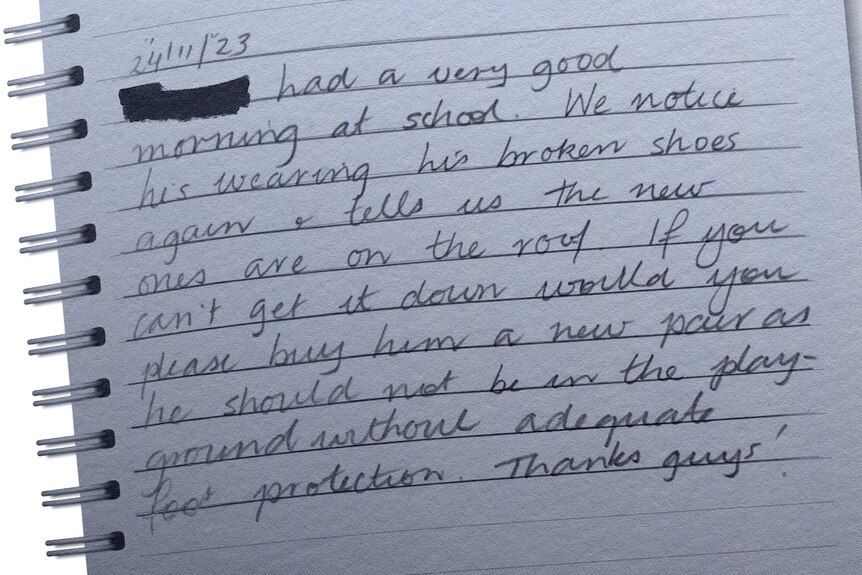 24/11/'23
had a very good
morning at school. We notice
his wearing his broken shoes
again & tells us the new
ones are on the roof. If you
can't get it down would you
please buy him a new pair as
he should not be in the play-
ground without adequate
foot protection. Thanks guys!